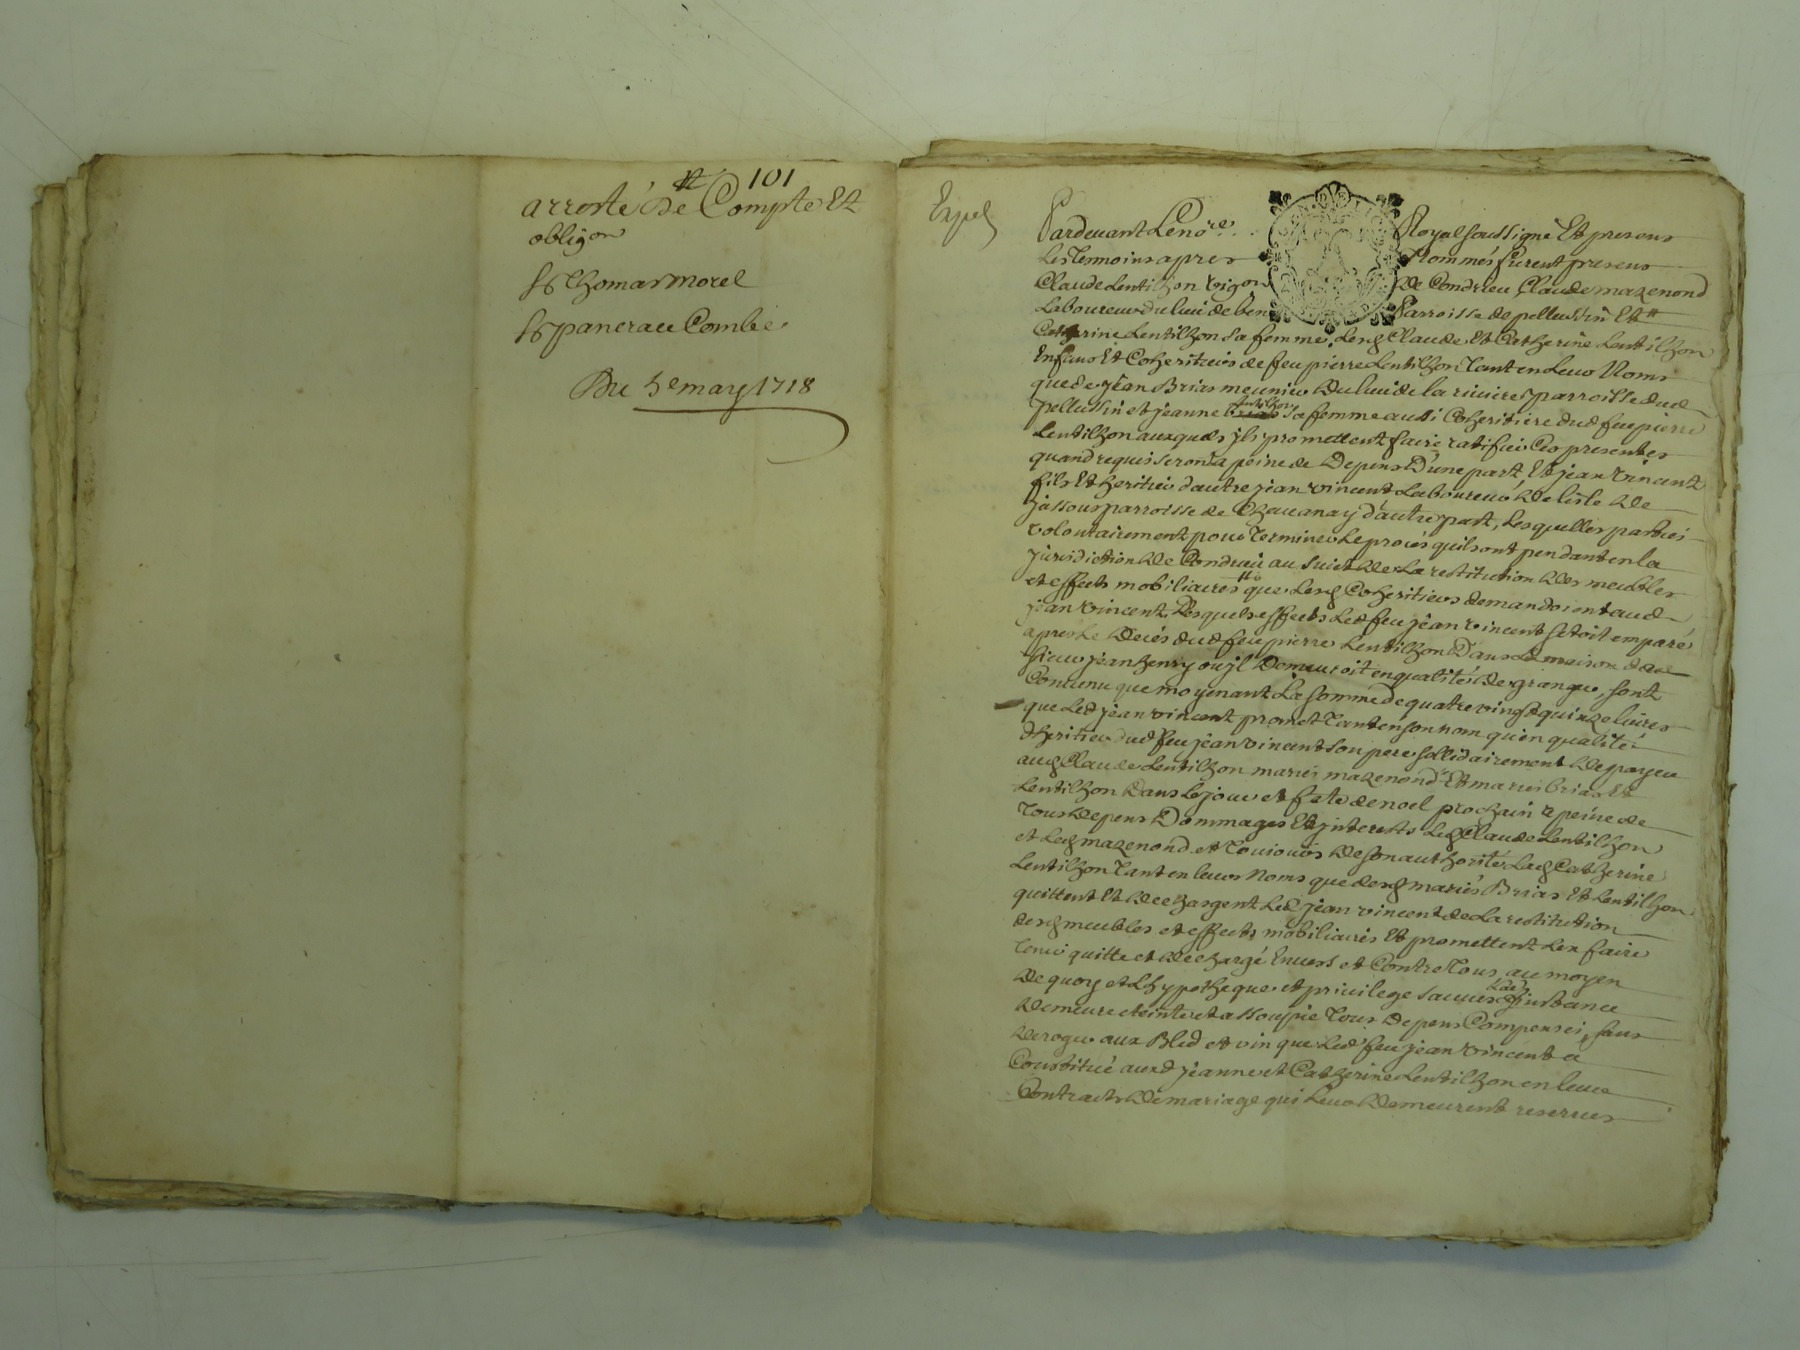 101
arresté de Compte Et
obligon
Sr Thomas morel
Sr pancrace Combe
Du 5e may 1718
Expé
Pardevant Le nore Royal soussigné Et presens
Les Temoins apres Nommés furent presens
Claude Lentilhon vigon de Condrieu Claude mazenond
Laboureur du lieu de ben Parroisse de pellussin Et
Catherine Lentilhon sa femme, Lesd Claude Et Catherine Lentilhon
Enfans Et Coheritiers de feu pierre Lentilhon Tant en Leurs Noms
que de jean Brias meunier Du lieu de la riviere parroisse dud
pellussin et jeanne Lentilhon sa femme aussi Coheritiere dud feu pierre
Lentilhon auxquels jls promettent faire ratifier Ces presentes
quand requis seront a peine de Depens D'une part, Et jean vincent
fils Et heritier dautre jean vincent Laboureur de lisle de
jassoux parroisse de Chavanay d'autre part, Lesquelles parties
volontairement pour Terminer Le procés quils ont pendant en la
jurisdiction de Condrieu au sujet de La restitution des meubles
et effects mobiliaires que Lesd Coheritiers demandoient aud
jean vincent, Desquels effects Led feu jean vincent setoit emparé
apres Le decés dud feu pierre Lentilhon Dans La maison de
sieur jean henry ou jl Demeuroit en qualité de granger, sont
Convenu que moyenant La somme de quatre vingt quinze livres
que Led jean vincent promet Tant en son nom qu'en qualité
dheritier dud feu jean vincent son pere sollidairement de payer
aud Claude Lentilhon mariés mazenond Et mariés brias Et
Lentilhon Dans Le jour et fete de noel prochain a peine de
Tous depens Dommages Et jnterests Led Claude Lentilhon
et Led mazenond et Toujours de son authorité Lad Catherine
Lentilhon Tant en leurs Noms que desd mariés Brias Et Lentilhon
quittent Et dechargent Led jean vincent de La restitution
desd meubles et effects mobiliaires Et promettent Len faire
Tenir quitte et dechargé Envers et Contre Tous, au moyen
De quoy et Lhypotheque et privilege sauves Lad jnstance
demeure eteinte et assoupie Tous Depens Compensés, sans
deroger aux Bled et vin que Led feu jean vincent a
Constitué auxd jeanne et Catherine Lentilhon en leur
Contracts de mariage qui Leur demeurent reservés